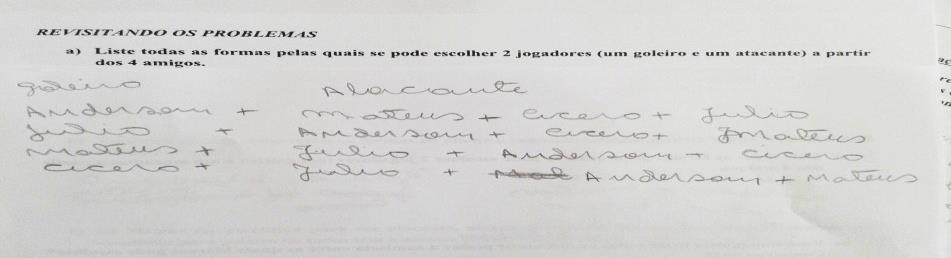 REVISITANDO OS PROBLEMAS
a) Liste todas as formas pelas quais se pode escolher 2 jogadores (um goleiro e um atacante) a partir
dos 4 amigos.
goleiro Atacante
Anderson + Mateus + Cicero + Julio
Julio + Anderson + Cicero + Mateus
Mateus + Julio + Anderson + Cicero
Cicero + Julio + Anderson + Mateus